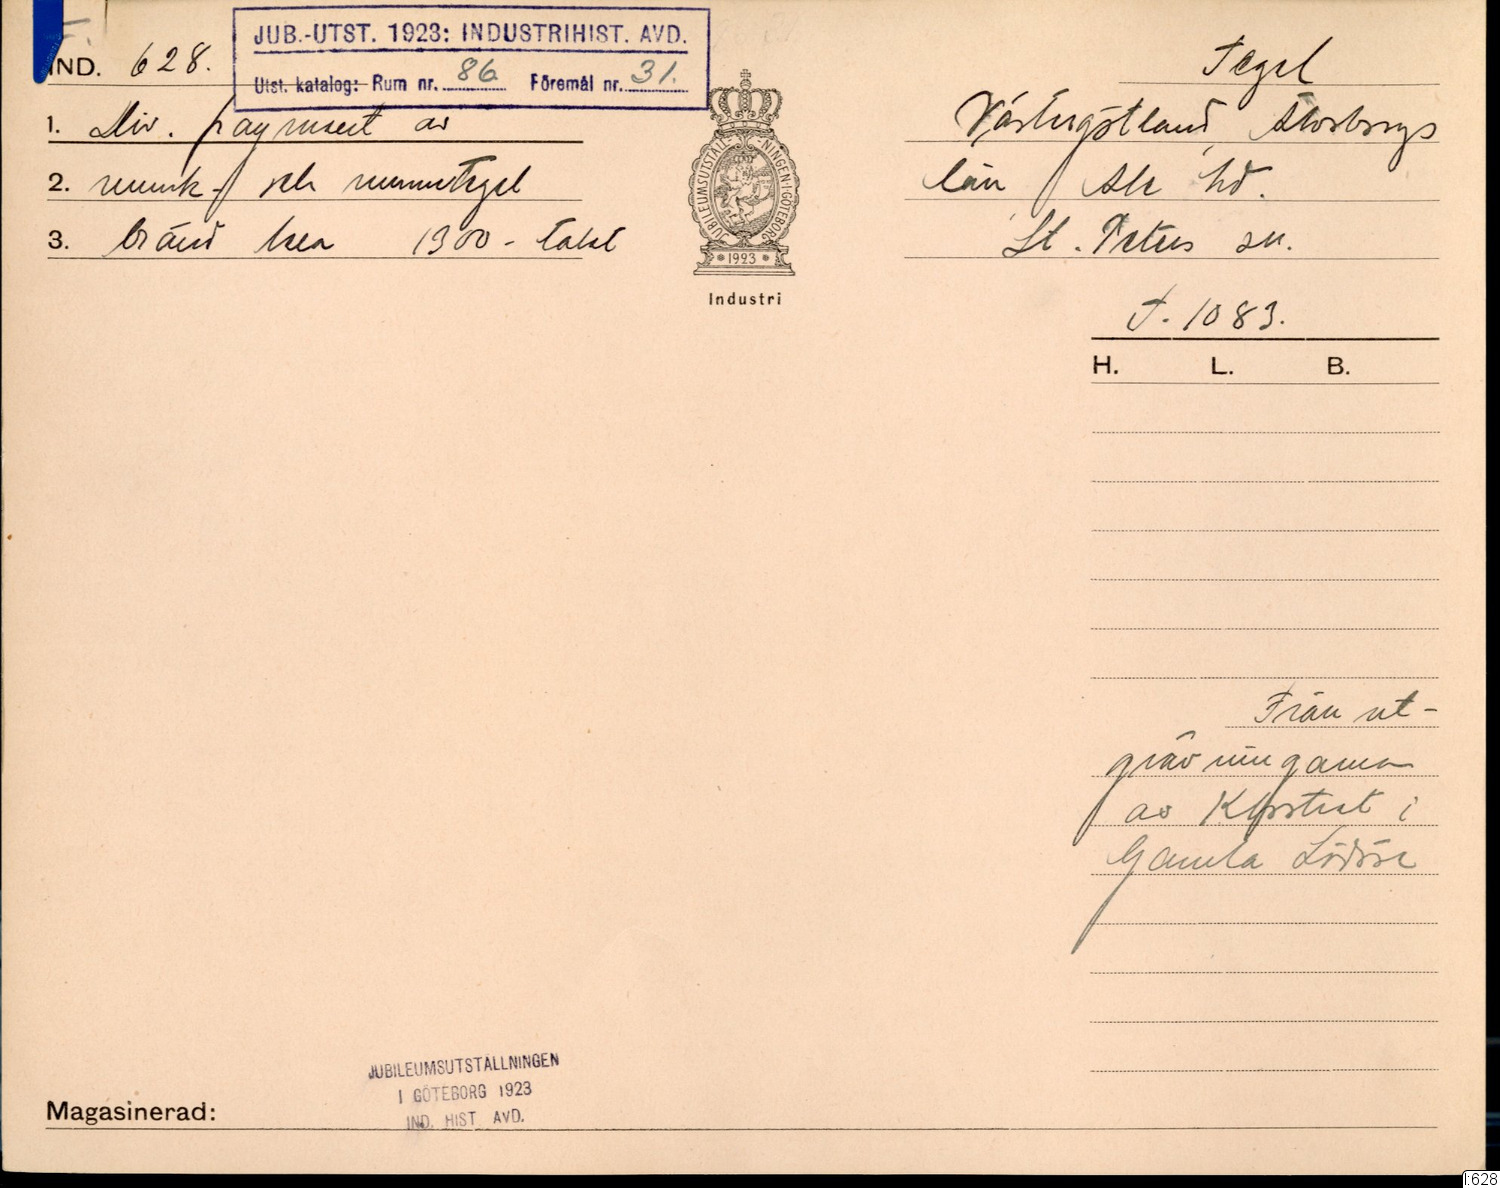 JUB.-UTST. 1923: INDUSTRIHIST. AVD.
Utst. katalog: Rum nr. 86 Föremål nr. 31.
IND. 628.
1. Div. fragment av
2. munk- och nunnetegel
3. bränd lera 1300-talet
JUBILEUMSUTSTÄLL-NINGEN·I·GÖTEBORG
1923
Industri
Tegel
Västergötland, Älvsborgs
län, Ale hd.
St. Peters sn.
T. 1083.
H. L. B.
Från ut-
grävningarna
av Klostret i
Gamla Lödöse
JUBILEUMSUTSTÄLLNINGEN
I GÖTEBORG 1923
IND. HIST AVD.
Magasinerad:
I:628